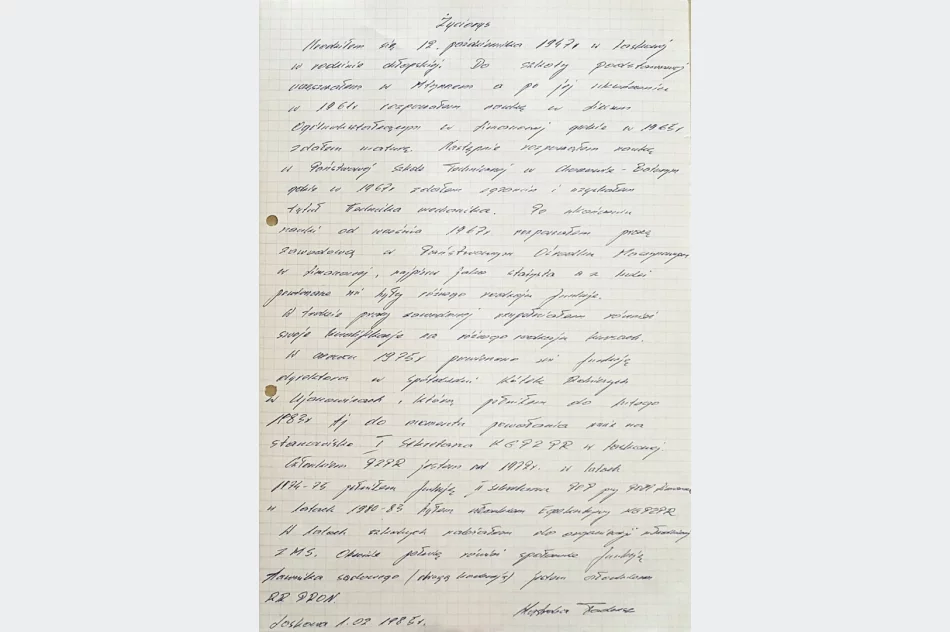 Życiorys
Urodziłem się 12. października 1947r w Łaskowej
w rodzinie chłopskiej. Do szkoły podstawowej
uczęszczałem w a po jej ukończeniu
w 1961r rozpocząłem naukę w Liceum
Ogólnokształcącym w Limanowej gdzie w 1965r
zdałem maturę. Następnie rozpocząłem naukę
w Państwowej Szkole Technicznej w Chorzowie - Batorym
gdzie w 1967r zdałem egzamin i uzyskałem
tytuł Technika mechanika. Po ukończeniu
nauki od września 1967r rozpocząłem pracę
zawodową w Państwowym Ośrodku Maszynowym
w Limanowej, najpierw jako stażysta a z kolei
powierzane mi były różnego rodzaju funkcje.
W trakcie pracy zawodowej uzupełniałem również
swoje kwalifikacje na różnego rodzaju kursach.
W 1975r powierzono mi funkcję
dyrektora w Spółdzielni Kółek Rolniczych
w Ujanowicach, którą pełniłem do lutego
1983r tj do momentu powołania mnie na
stanowisko I Sekretarza KG PZPR w Łaskowej.
Członkiem PZPR jestem od 1979r. w latach
1974-75 pełniłem funkcję II sekretarza POP przy
w latach 1980-83 byłem członkiem Egzekutywy KG PZPR
W latach szkolnych należałem do organizacji młodzieżowej
ZMS. Obecnie pełnię również społecznie funkcję
ławnika sądowego (drugą kadencję) jestem członkiem
RR PRON.
Łaskowa 1.02 1985r. Tadeusz